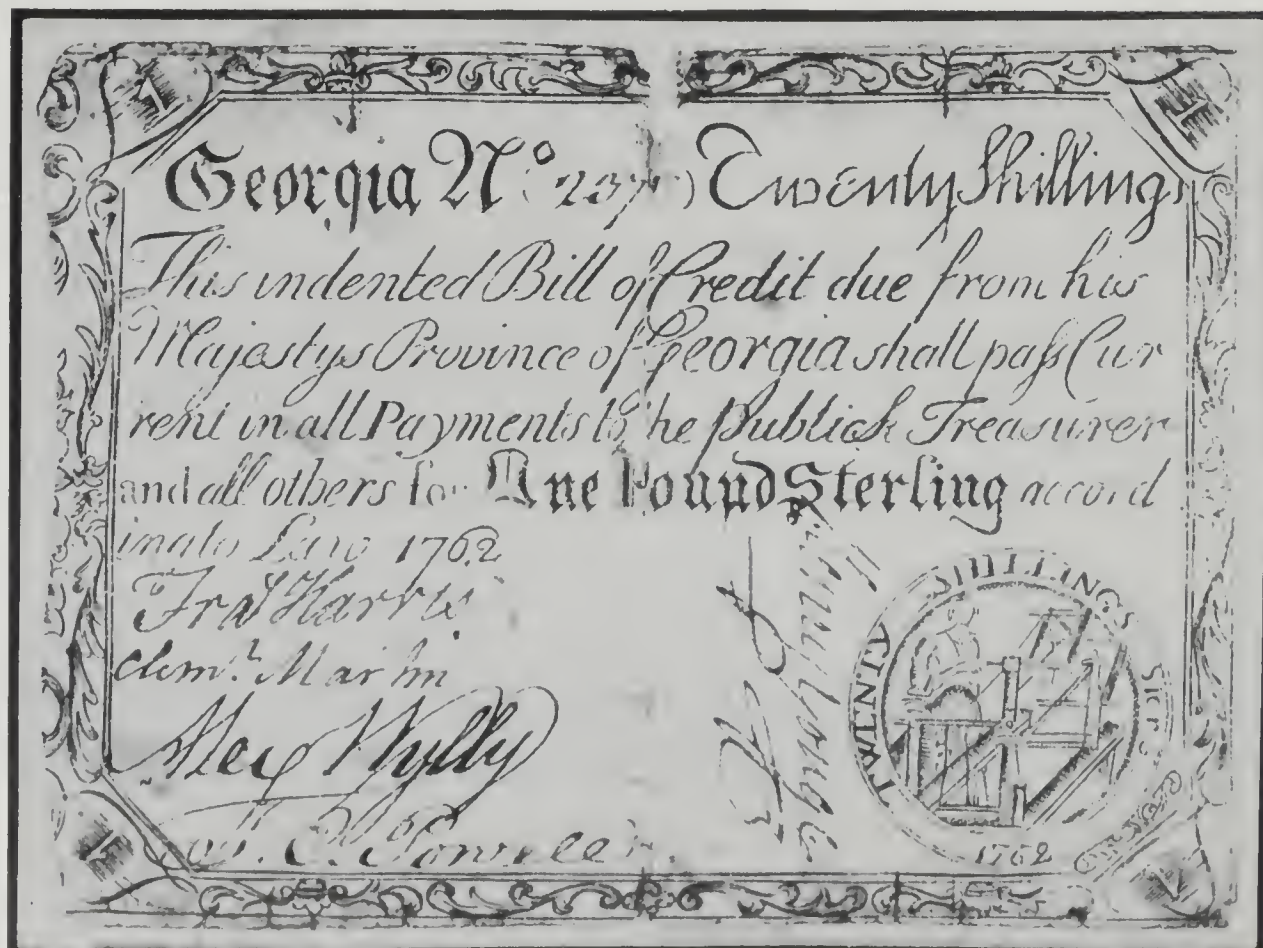 1
1
Georgia No 237 Twenty Shillings
This indented Bill of Credit due from his
Majestys Province of Georgia shall paſs Cur
rent in all Payments to the publick Treasurer
and all others for One Pound Sterling accord
ing to Law 1762
Fras Harris
Clemt. Martin
Alex Wylly
TWENTY SHILLINGS
1762
1
1